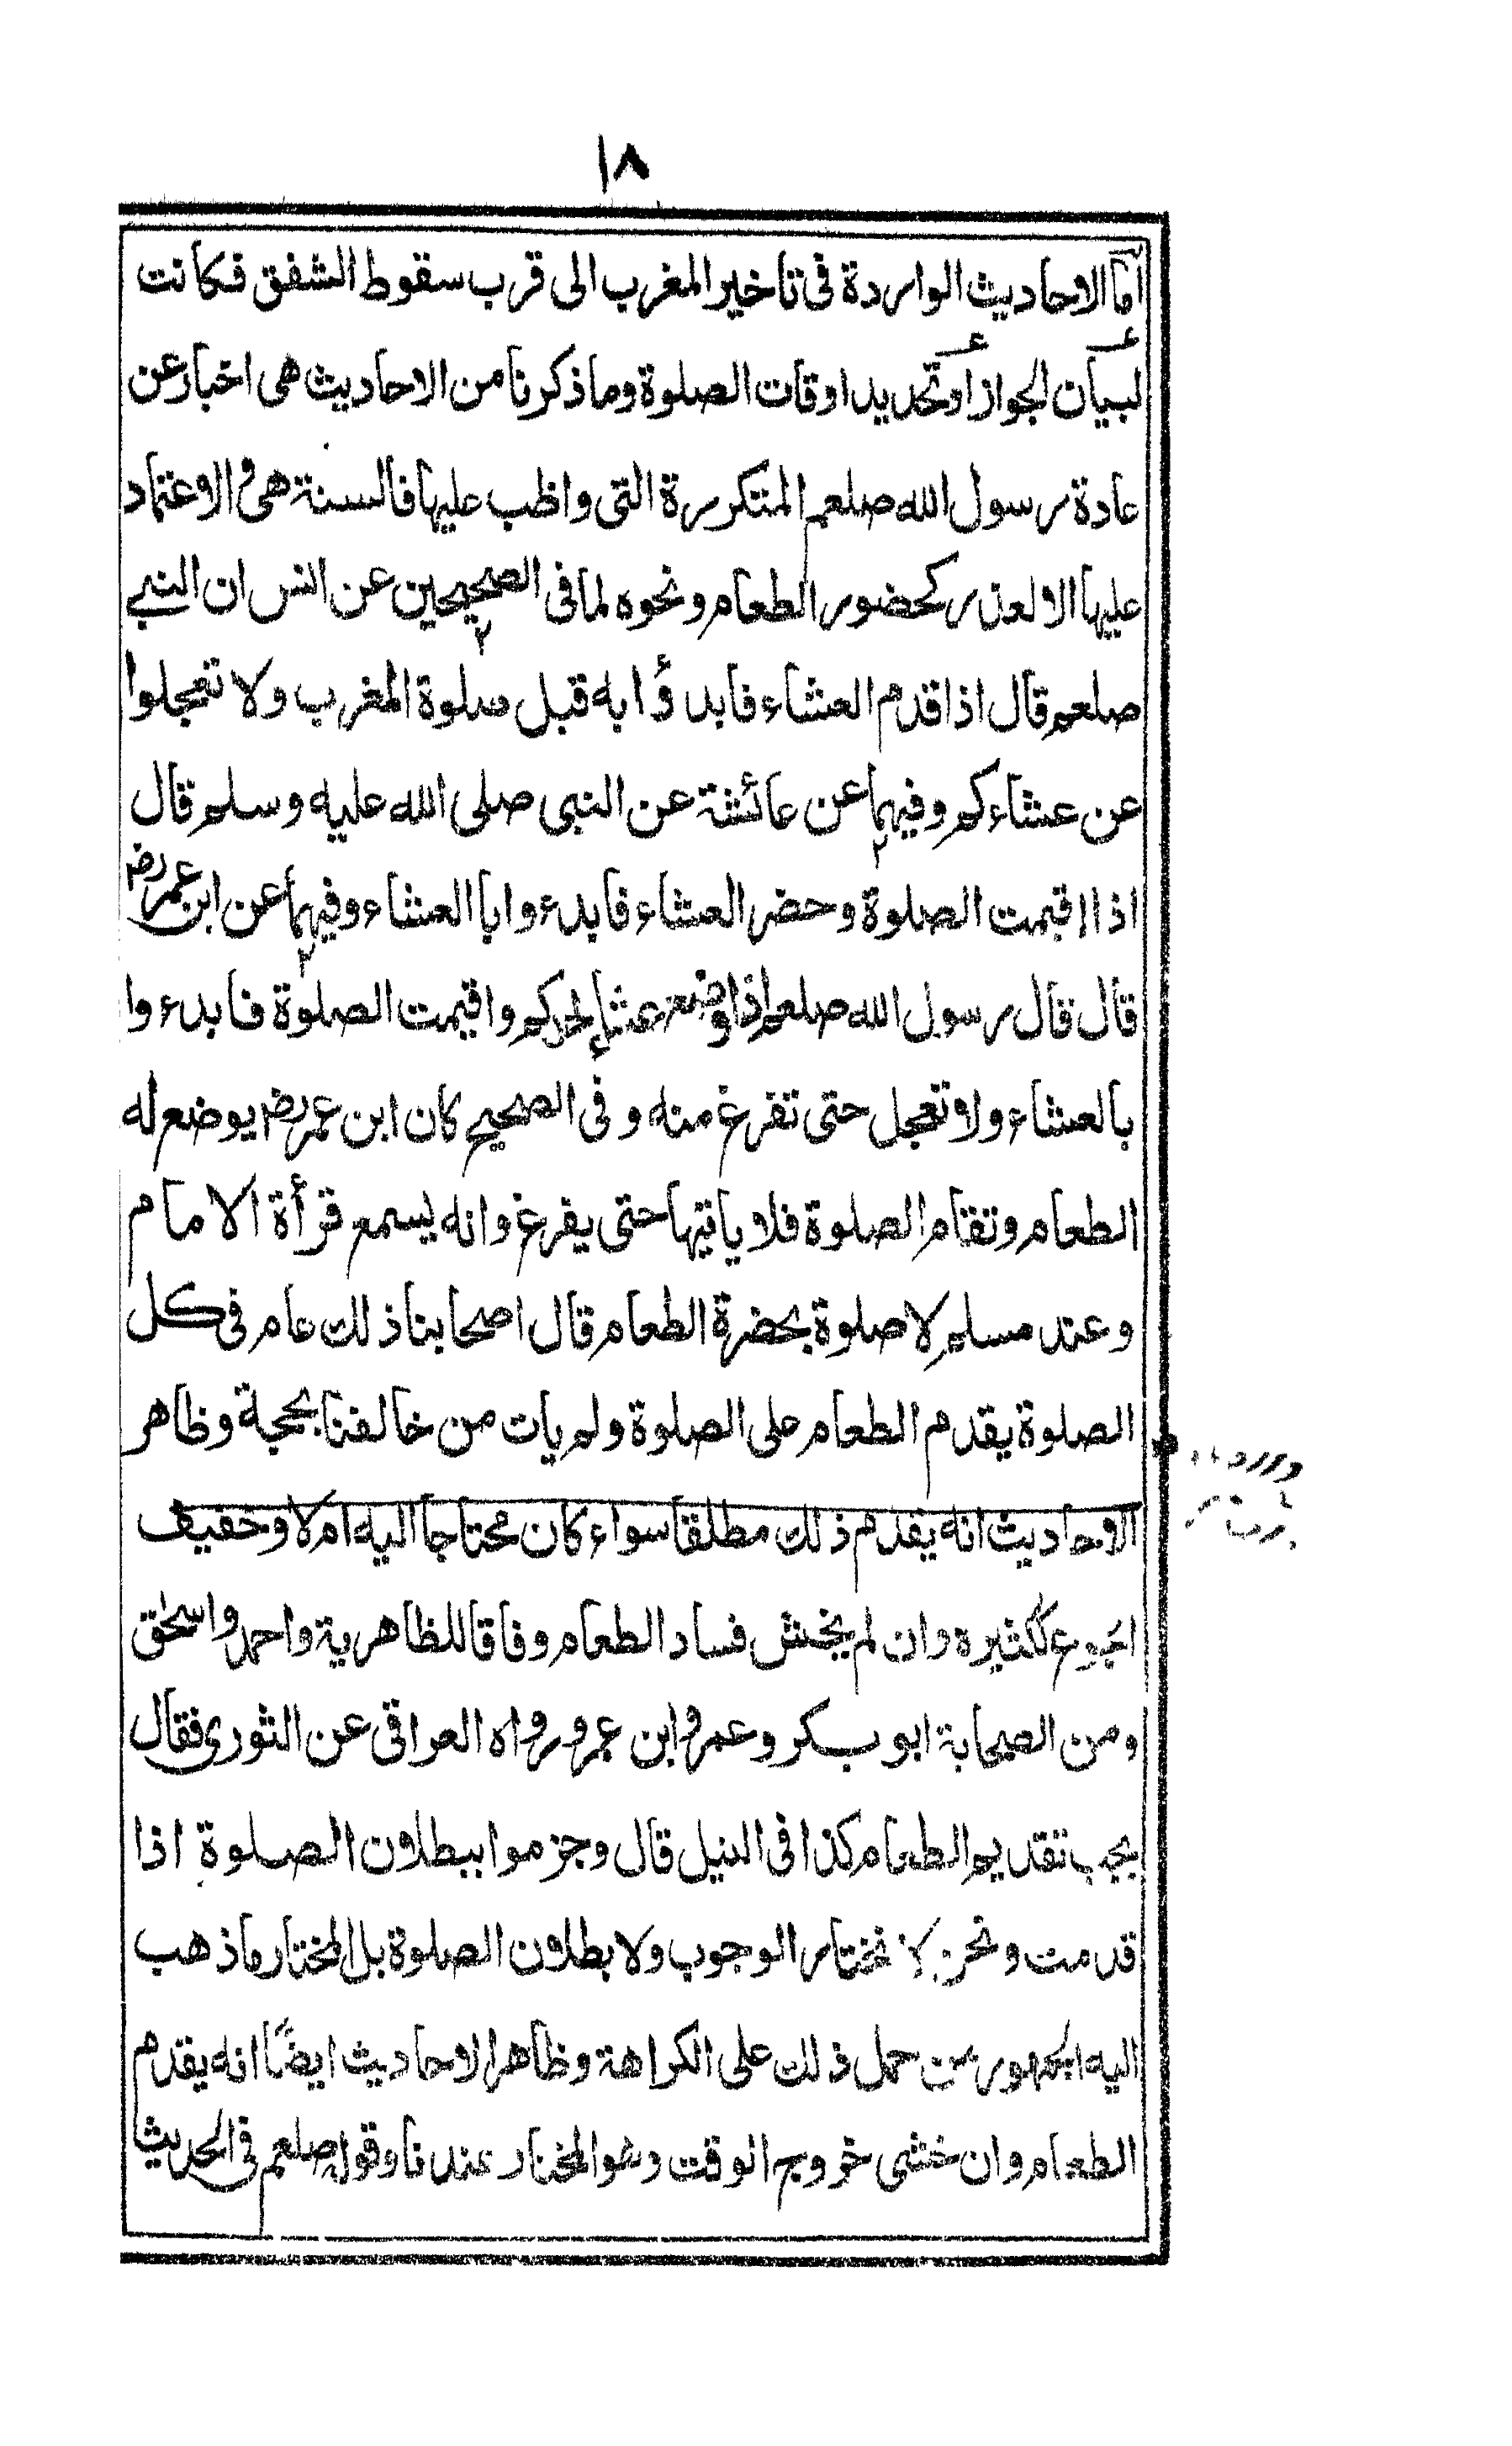 ١٨
اما الاحاديث الواردة فى تاخير المغرب الى قرب سقوط الشفق فكانت
لبيان الجواز او تحديد اوقات الصلوة وما ذكرنا من الاحاديث هى اخبار عن
عادة رسول الله صلعم المتكررة التى واظب عليها فالسنة هى والاعتماد
عليها الا لعذر كحضور الطعام ونحوه لما فى الصحيحين عن انس ان النبى
صلعم قال اذا قدم العشاء فابدؤا به قبل صلوة المغرب ولا تعجلوا
عن عشاءكم وفيهما عن عائشة عن النبى صلى الله عليه وسلم قال
اذا اقيمت الصلوة وحضر العشاء فابدءوا با العشاء وفيهما عن ابن عمر رض
قال قال رسول الله صلعم اذا وضع عشاء احدكم واقيمت الصلوة فابدءوا
بالعشاء ولا تعجل حتى تفرغ منه وفى الصحيح كان ابن عمر رض يوضع له
الطعام وتقام الصلوة فلا ياتيها حتى يفرغ وانه ليسمع قرأة الامام
وعند مسلم لا صلوة بحضرة الطعام قال اصحابنا ذلك عام فى كل
الصلوة يقدم الطعام على الصلوة ولم يات من خالفنا بحجة وظاهر
الاحاديث انه يقدم ذلك مطلقا سواء كان محتاجا اليه ام لا وخفيف
الجوع ككثيره وان لم يخش فساد الطعام وفاقا للظاهرية واحمد واسحٰق
ومن الصحابة ابو بكر وعمر وابن عمر ورواه العراقى عن الثورى فقال
يجب تقديم الطعام كذا فى النيل قال وجزموا ببطلان الصلوة اذا
قدمت ونحن لا نختار الوجوب ولا بطلان الصلوة بل المختار ما ذهب
اليه الجمهور من حمل ذلك على الكراهة وظاهر الاحاديث ايضًا انه يقدم
الطعام وان خشى خروج الوقت وهو المختار عندنا وقوله صلعم فى الحديث